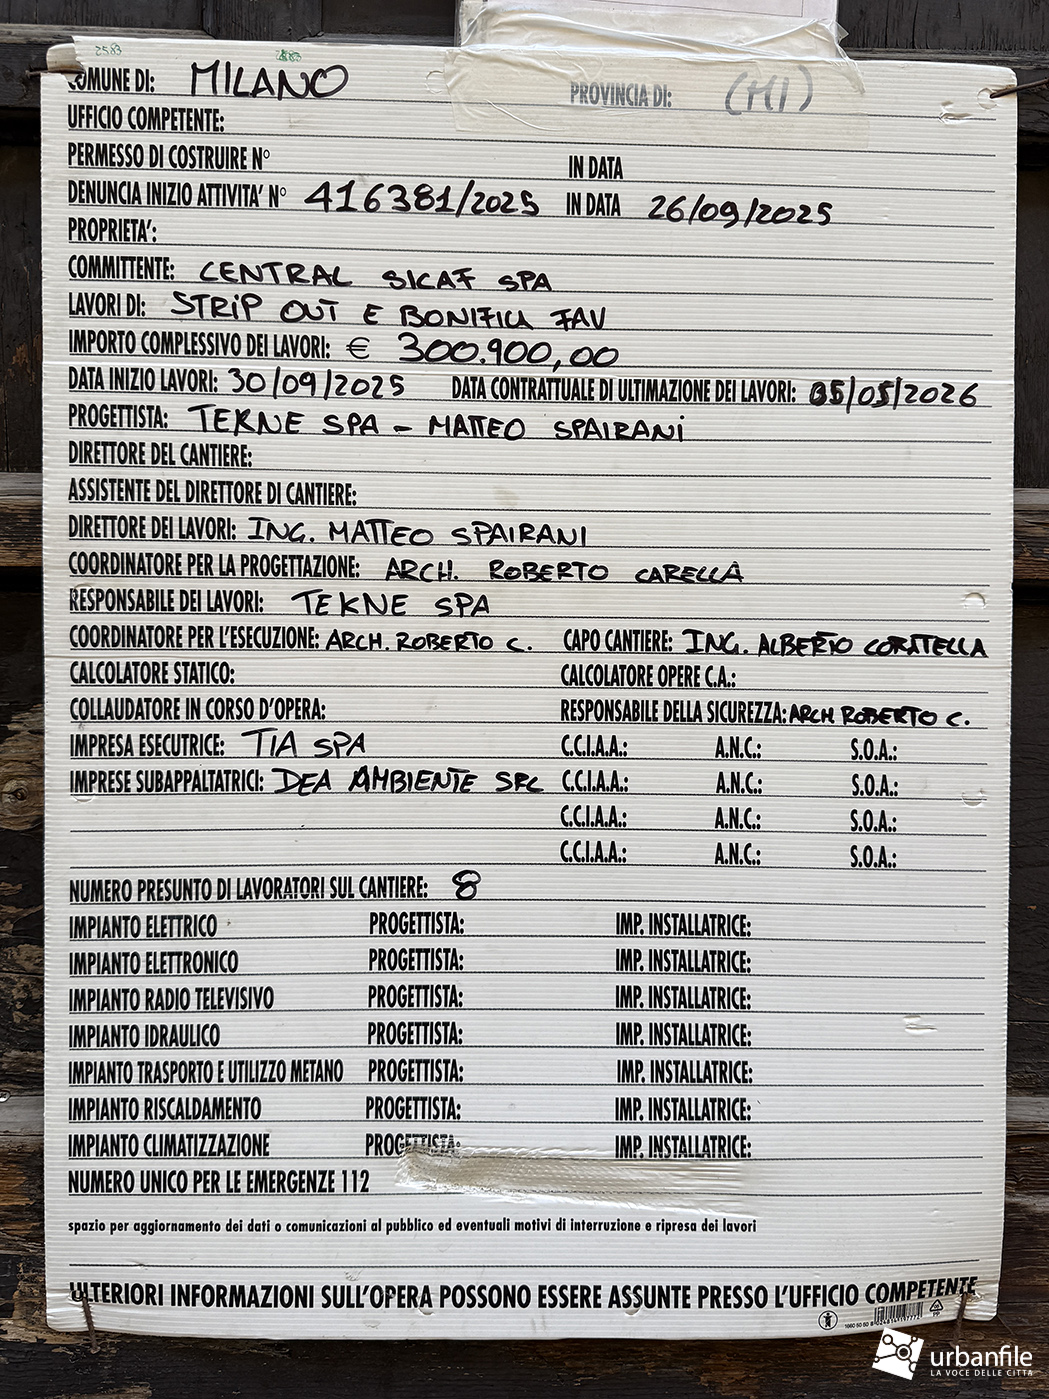 2583
COMUNE DI: MILANO PROVINCIA DI: (MI)
UFFICIO COMPETENTE:
PERMESSO DI COSTRUIRE N° IN DATA
DENUNCIA INIZIO ATTIVITA' N° 416381/2025 IN DATA 26/09/2025
PROPRIETA':
COMMITTENTE: CENTRAL SICAF SPA
LAVORI DI: STRIP OUT E BONIFICA FAV
IMPORTO COMPLESSIVO DEI LAVORI: € 300.900,00
DATA INIZIO LAVORI: 30/09/2025 DATA CONTRATTUALE DI ULTIMAZIONE DEI LAVORI: 05/05/2026
PROGETTISTA: TEKNE SPA - MATTEO SPAIRANI
DIRETTORE DEL CANTIERE:
ASSISTENTE DEL DIRETTORE DI CANTIERE:
DIRETTORE DEI LAVORI: ING. MATTEO SPAIRANI
COORDINATORE PER LA PROGETTAZIONE: ARCH. ROBERTO CARELLÀ
RESPONSABILE DEI LAVORI: TEKNE SPA
COORDINATORE PER L'ESECUZIONE: ARCH. ROBERTO C. CAPO CANTIERE: ING. ALBERTO CORATELLA
CALCOLATORE STATICO: CALCOLATORE OPERE C.A.:
COLLAUDATORE IN CORSO D'OPERA: RESPONSABILE DELLA SICUREZZA: ARCH ROBERTO C.
IMPRESA ESECUTRICE: TIA SPA C.C.I.A.A.: A.N.C.: S.O.A.:
IMPRESE SUBAPPALTATRICI: DEA AMBIENTE SRL C.C.I.A.A.: A.N.C.: S.O.A.:
C.C.I.A.A.: A.N.C.: S.O.A.:
C.C.I.A.A.: A.N.C.: S.O.A.:
NUMERO PRESUNTO DI LAVORATORI SUL CANTIERE: 8
IMPIANTO ELETTRICO PROGETTISTA: IMP. INSTALLATRICE:
IMPIANTO ELETTRONICO PROGETTISTA: IMP. INSTALLATRICE:
IMPIANTO RADIO TELEVISIVO PROGETTISTA: IMP. INSTALLATRICE:
IMPIANTO IDRAULICO PROGETTISTA: IMP. INSTALLATRICE:
IMPIANTO TRASPORTO E UTILIZZO METANO PROGETTISTA: IMP. INSTALLATRICE:
IMPIANTO RISCALDAMENTO PROGETTISTA: IMP. INSTALLATRICE:
IMPIANTO CLIMATIZZAZIONE PROGETTISTA: IMP. INSTALLATRICE:
NUMERO UNICO PER LE EMERGENZE 112
spazio per aggiornamento dei dati o comunicazioni al pubblico ed eventuali motivi di interruzione e ripresa dei lavori
ULTERIORI INFORMAZIONI SULL'OPERA POSSONO ESSERE ASSUNTE PRESSO L'UFFICIO COMPETENTE
PP
urbanfile
LA VOCE DELLE CITTÀ